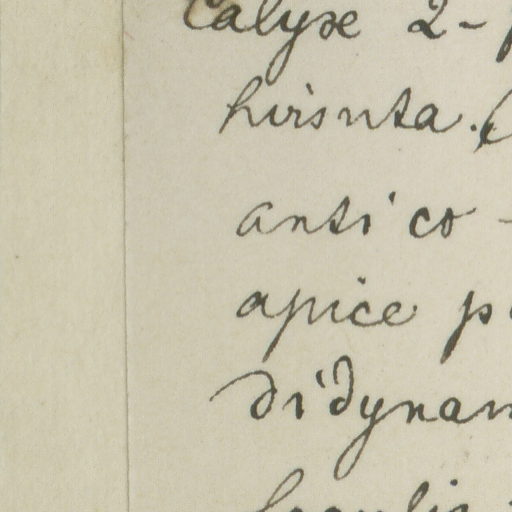 Calyxe 2-
hirsuta.
antico-
apice p
didynam